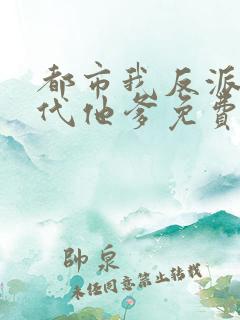 都市我反派
代他爹免費
帥泉
未经同意禁止转载